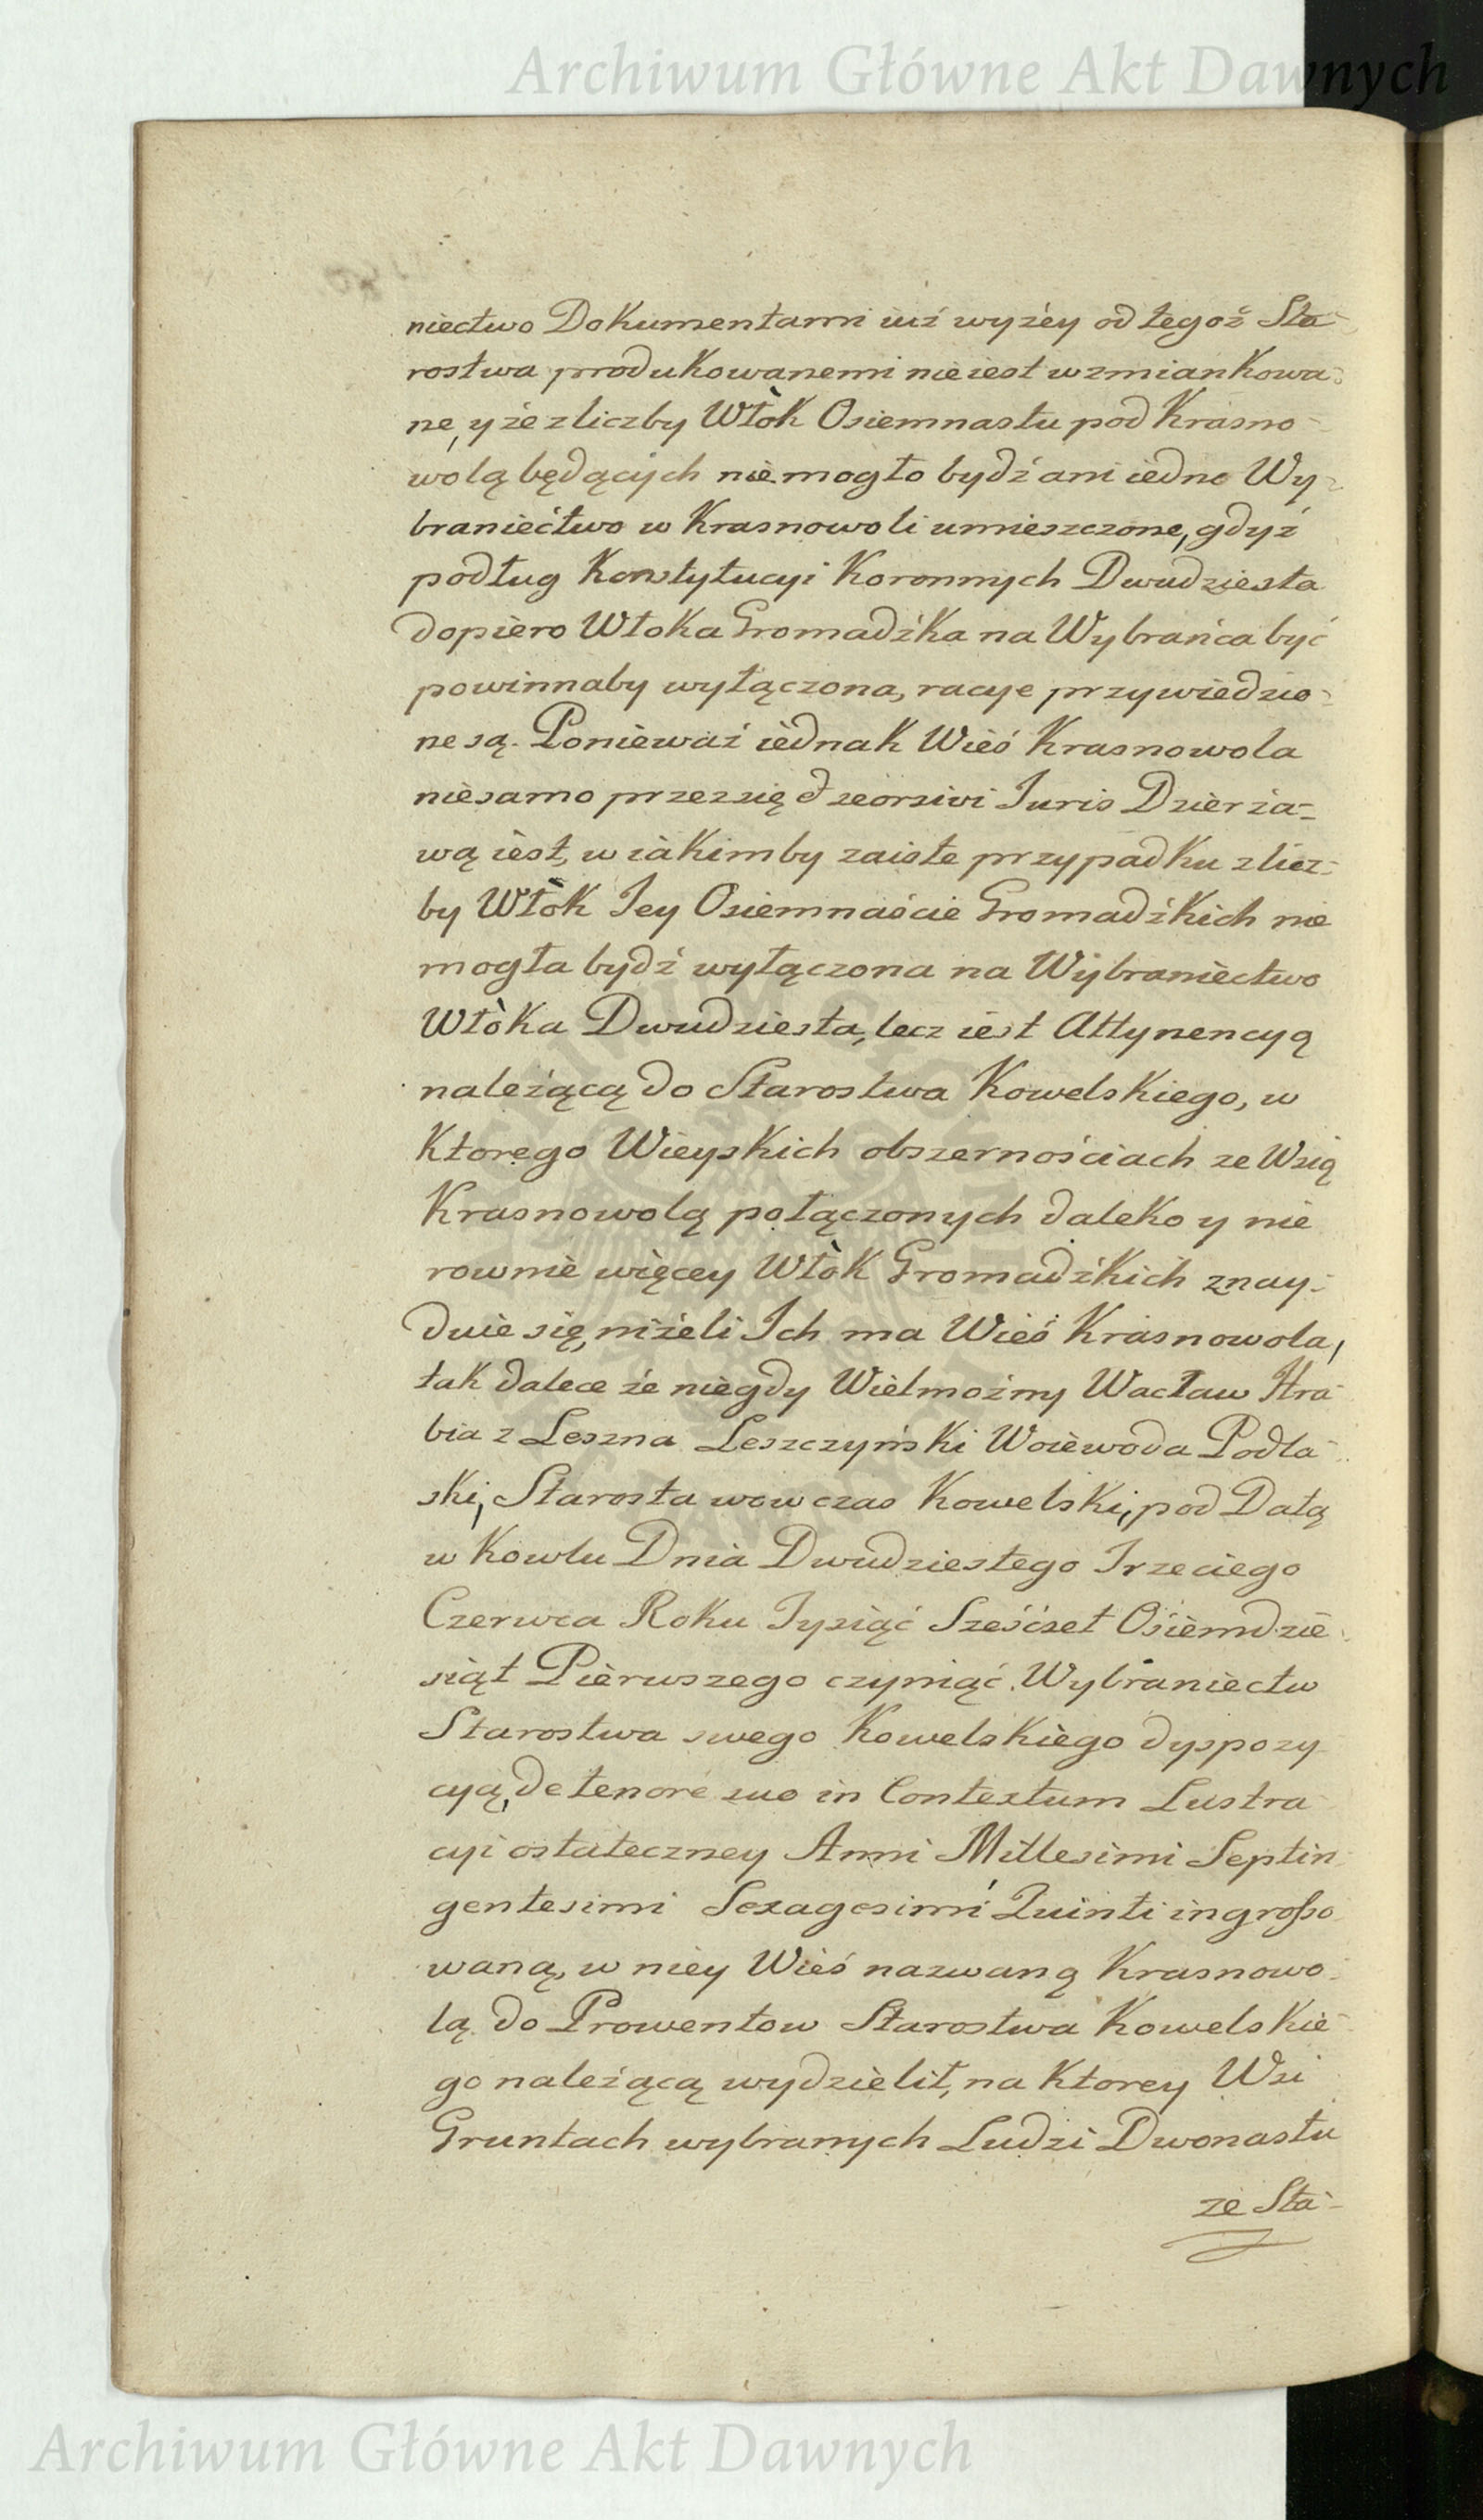 Archiwum Główne Akt Dawnych
niectwo Dokumentami iuż wyżey od tegoż Sta-
rostwa produkowanemi nieiest wzmiankowa-
ne, y że z liczby Włok Osiemnastu pod Krasno-
wolą będących nie mogło bydź ani iedno Wy-
braniectwo w Krasnowoli umieszczone, gdyż
podług Konstytucyi Koronnych Dwudziesta
dopiero Włoka Gromadźka na Wybrańca być
powinnaby wyłączona, racye przywiedzio-
ne są. Ponieważ iednak Wieś Krasnowola
niesamo przez się d seorsivi Iuris Dzierża-
wą iest, w iakimby zaiste przypadku z licz-
by Włòk Jey Osiemnaście Gromadźkich nie
mogła bydź wyłączona na Wybraniectwo
Włòka Dwudziesta, lecz iest Attynencyą
należącą do Starostwa Kowelskiego, w
Ktorego Wieyskich obszernościach ze Wsią
Krasnowolą połączonych daleko y nie
rownie więcey Włòk Gromadźkich znay-
duie się, niżeli Ich ma Wieś Krasnowola,
tak dalece że niegdy Wielmożny Wacław Hra-
bia z Leszna Leszczyński Woiewoda Podla-
ski, Starosta wowczas Kowelski, pod Datą
w Kowlu Dnia Dwudziestego Trzeciego
Czerwca Roku Tysiąć Sześćset Osiemdzie-
siąt Pierwszego czyniąć Wybraniectw
Starostwa swego Kowelskiego dyspozy-
cyą, de tenore suo in Contextum Lustra-
cyi ostateczney Anni Millesimi Septin-
gentesimi Sexagesimi Quinti ingrosso-
waną, w niey Wieś nazwaną Krasnowo-
lą do Prowentow Starostwa Kowelskie-
go należącą wydzielił, na Ktorey Wsi
Gruntach wybranych Ludzi Dwonastu
ze Sta-
Archiwum Główne Akt Dawnych